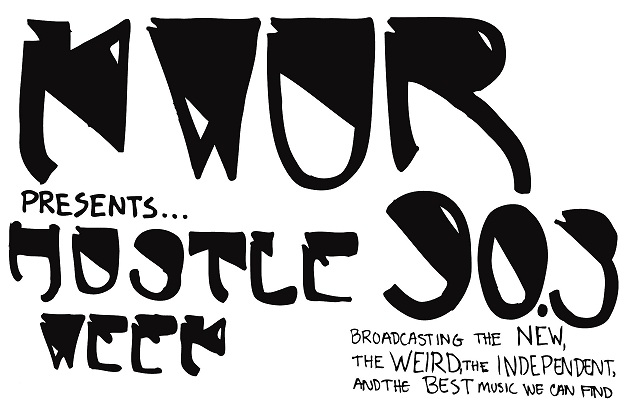 KWUR
PRESENTS...
90.3
HUSTLE
WEEK
BROADCASTING THE NEW,
THE WEIRD, THE INDEPENDENT,
AND THE BEST MUSIC WE CAN FIND